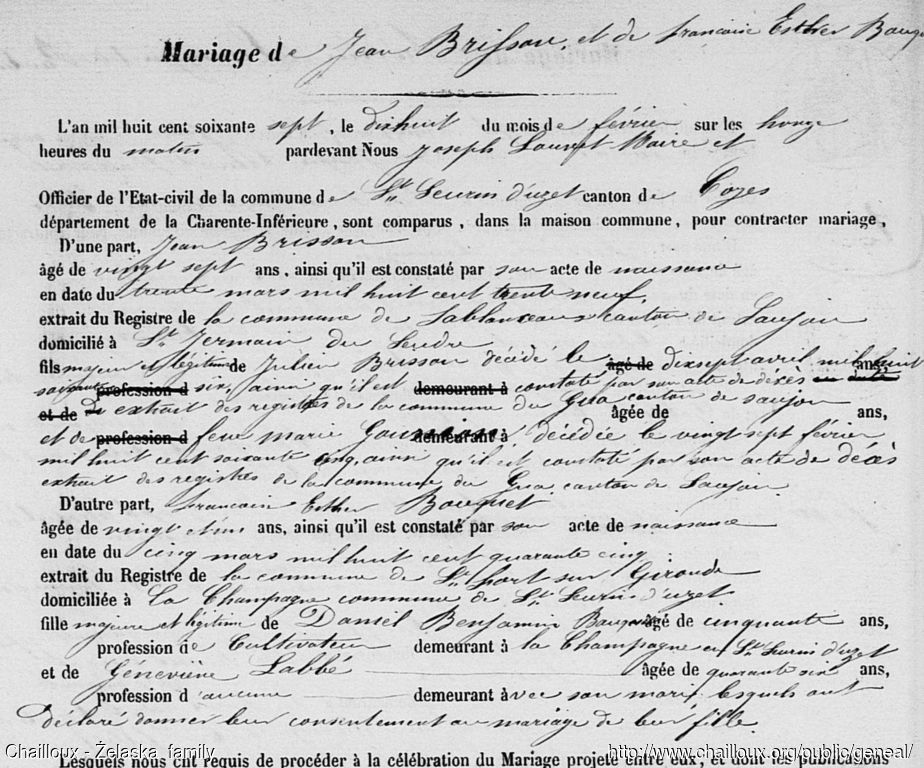 Mariage de Jean Brisson et de francoise Esther Bouq
L'an mil huit cent soixante sept, le dixhuit du mois de février sur les honze
heures du matin pardevant Nous Joseph Louvet Maire et
Officier de l'Etat-civil de la commune de St Seurin d'uzet canton de Cozes
département de la Charente-Inférieure, sont comparus, dans la maison commune, pour contracter mariage,
D'une part, Jean Brisson
âgé de vingt sept ans, ainsi qu'il est constaté par son acte de naissance
en date du trente mars mil huit cent trente neuf,
extrait du Registre de la commune de Sablanceaux canton de Saujon
domicilié à St Germain du Seudre
fils majeur et légitime de Julien Brisson décédé le âgé de dixsept avril mil huit ans,
soixante profession d six, ainsi qu'il est demeurant à constaté par son acte de décès
et de De extrait des registres de la commune du Gua canton de saujon âgée de ans,
et de profession d feue marie demeurant à, décédée le vingt sept février
mil huit cent soixante cinq, ainsi qu'il est constaté par son acte de décès
extrait des registres de la commune du Gua canton de Saujon.
D'autre part, francoise Esther Bouquet
âgée de vingt et un ans, ainsi qu'il est constaté par son acte de naissance
en date du cinq mars mil huit cent quarante cinq
extrait du Registre de la commune de St fort sur Gironde
domiciliée à La Champagne commune de St Seurin d'uzet
fille majeure et légitime de Daniel Benjamin Bouquet âgé de cinquante ans,
profession de Cultivateur demeurant à la Champagne en St Seurin d'uzet
et de Géneviève Labbé âgée de quarante six ans,
profession d'aucune demeurant avec son mari. Lesquels ont
déclaré donner leur consentement au mariage de leur fille.
Lesquels nous ont requis de procéder à la célébration du Mariage projeté entre eux, et dont les publications
Chailloux - Żelaska family http://www.chailloux.org/public/geneal/